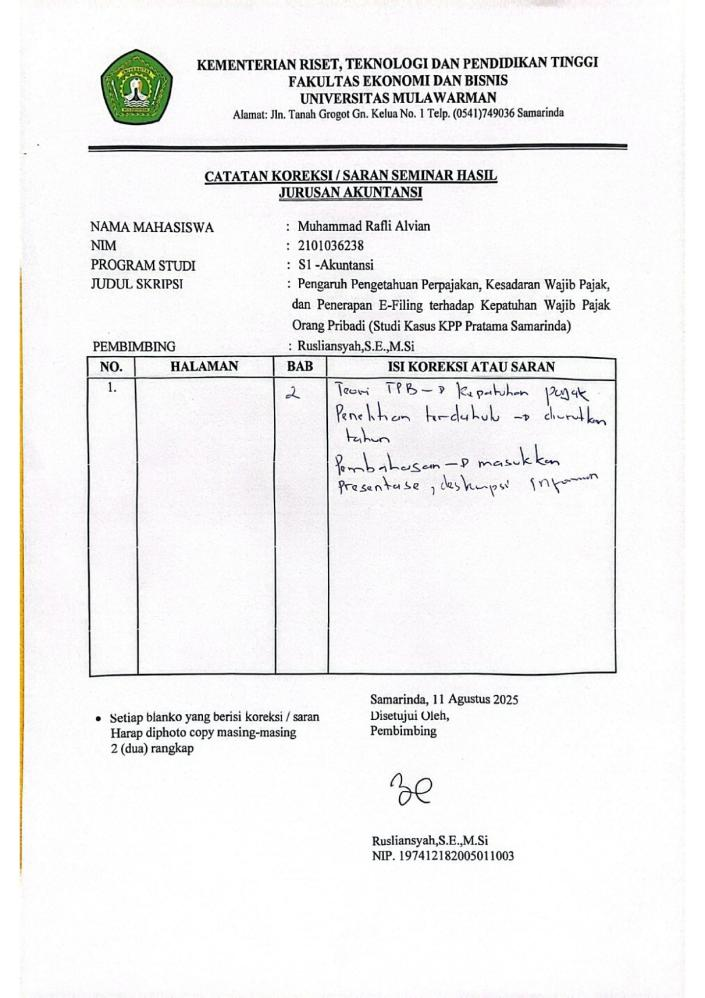 KEMENTERIAN RISET, TEKNOLOGI DAN PENDIDIKAN TINGGI
FAKULTAS EKONOMI DAN BISNIS
UNIVERSITAS MULAWARMAN
Alamat: Jln. Tanah Grogot Gn. Kelua No. 1 Telp. (0541)749036 Samarinda
CATATAN KOREKSI / SARAN SEMINAR HASIL
JURUSAN AKUNTANSI
NAMA MAHASISWA : Muhammad Rafli Alvian
NIM : 2101036238
PROGRAM STUDI : S1 -Akuntansi
JUDUL SKRIPSI : Pengaruh Pengetahuan Perpajakan, Kesadaran Wajib Pajak,
dan Penerapan E-Filing terhadap Kepatuhan Wajib Pajak
Orang Pribadi (Studi Kasus KPP Pratama Samarinda)
PEMBIMBING : Rusliansyah,S.E.,M.Si
NO. HALAMAN BAB ISI KOREKSI ATAU SARAN
1. 2 Teori TPB → kepatuhan pajak
Penelitian terdahulu → diurutkan
tahun
Pembahasan → masukkan
presentase, deskripsi
Samarinda, 11 Agustus 2025
• Setiap blanko yang berisi koreksi / saran Disetujui Oleh,
Harap diphoto copy masing-masing Pembimbing
2 (dua) rangkap
Rusliansyah,S.E.,M.Si
NIP. 197412182005011003